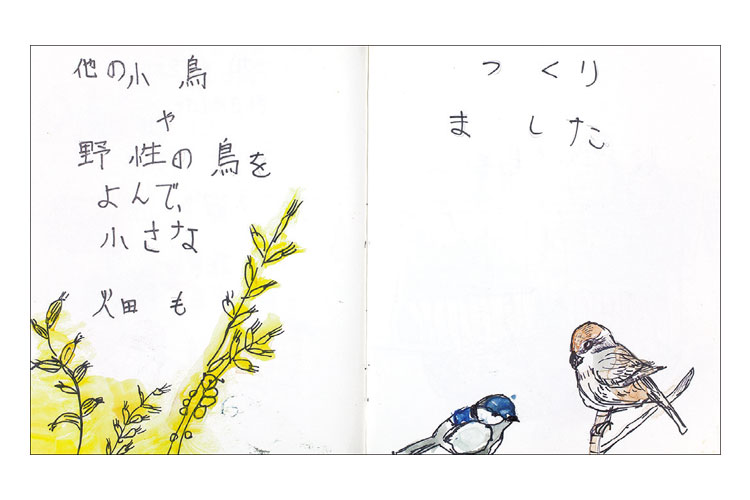 他の小鳥
や
野性の鳥を
よんで、
小さな
畑も
つくり
ました